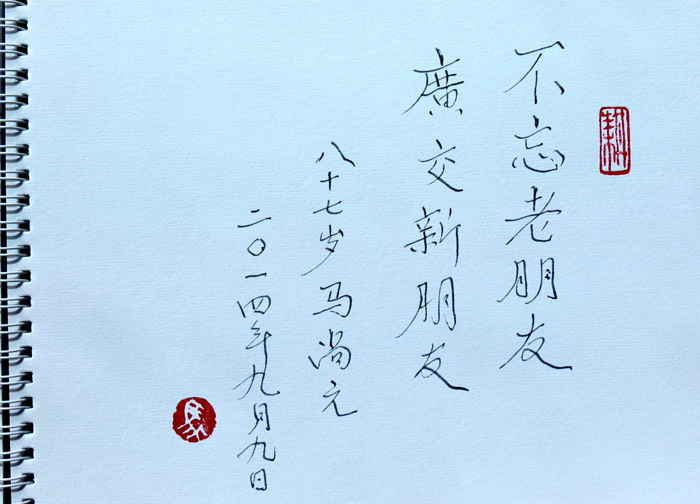 不忘老朋友
廣交新朋友
八十七岁马 元
二〇一四年九月九日